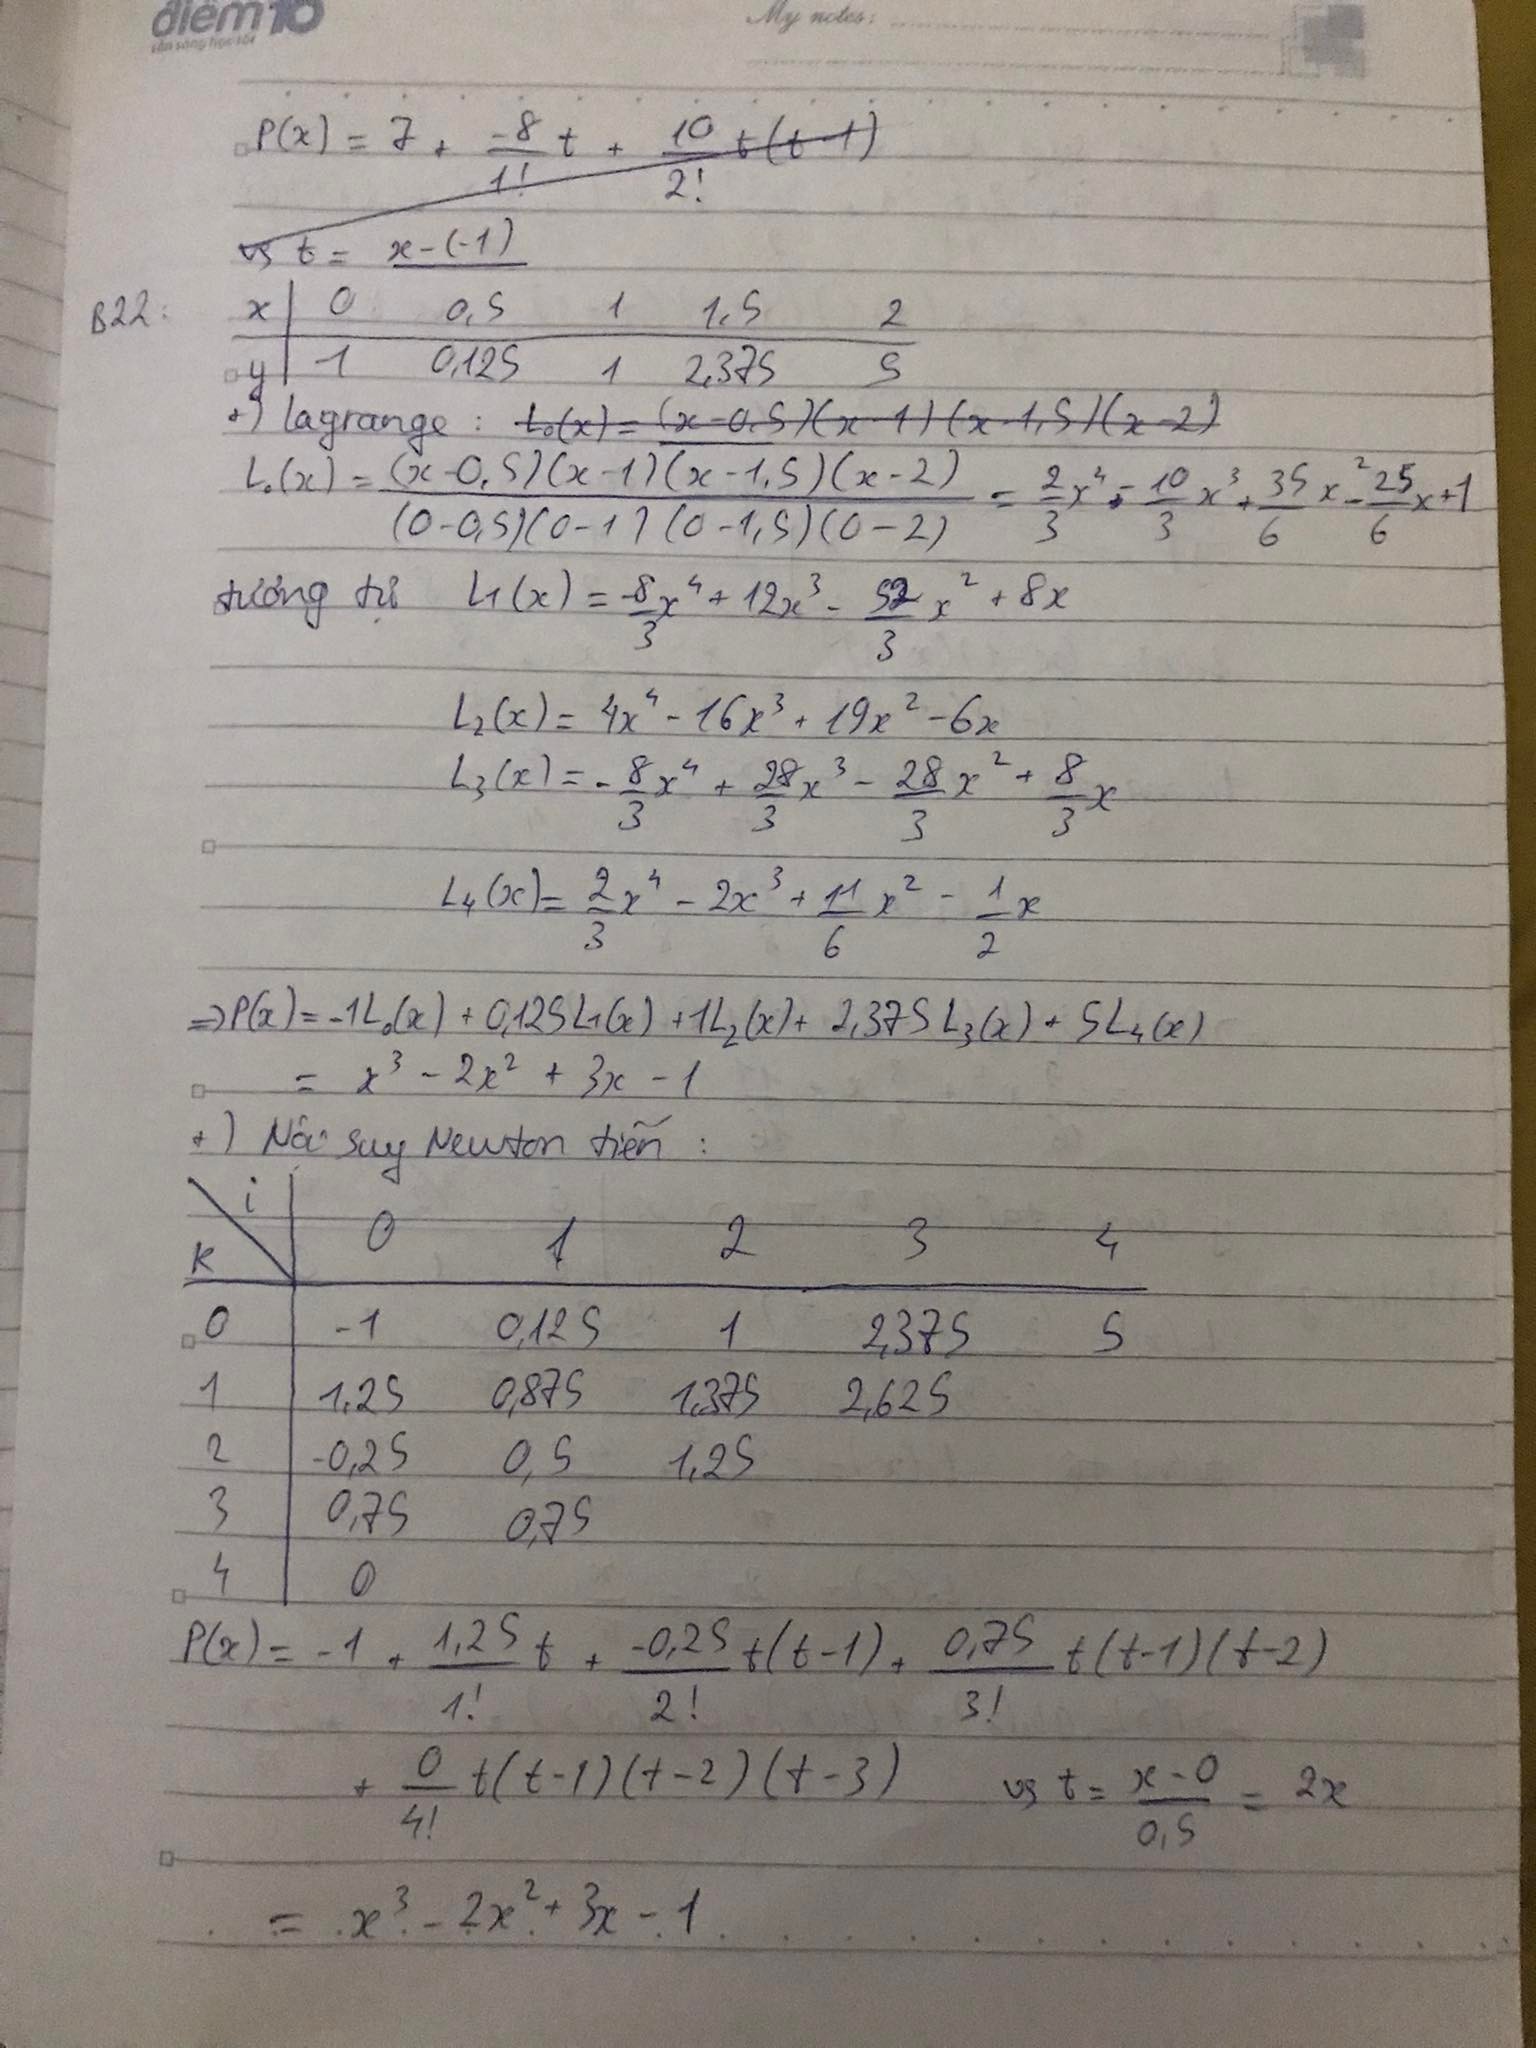 điểm 10
sẵn sàng học tốt
My notes:
P(x) = 7 + -8/1! t + 10/2! t(t-1)
vs t = x-(-1)
B22: x | 0 0,5 1 1,5 2
y | -1 0,125 1 2,375 5
+) lagrange : L₀(x) = (x-0,5)(x-1)(x-1,5)(x-2)
L₀(x) = (x-0,5)(x-1)(x-1,5)(x-2) / (0-0,5)(0-1)(0-1,5)(0-2) = 2/3 x⁴ - 10/3 x³ + 35/6 x² - 25/6 x + 1
tương tự L₁(x) = -8/3 x⁴ + 12x³ - 52/3 x² + 8x
L₂(x) = 4x⁴ - 16x³ + 19x² - 6x
L₃(x) = -8/3 x⁴ + 28/3 x³ - 28/3 x² + 8/3 x
L₄(x) = 2/3 x⁴ - 2x³ + 11/6 x² - 1/2 x
⇒ P(x) = -1L₀(x) + 0,125L₁(x) + 1L₂(x) + 2,375L₃(x) + 5L₄(x)
= x³ - 2x² + 3x - 1
+) Nội suy Newton tiến :
i
K 0 1 2 3 4
0 -1 0,125 1 2,375 5
1 1,25 0,875 1,375 2,625
2 -0,25 0,5 1,25
3 0,75 0,75
4 0
P(x) = -1 + 1,25/1! t + -0,25/2! t(t-1) + 0,75/3! t(t-1)(t-2)
+ 0/4! t(t-1)(t-2)(t-3) vs t = x-0/0,5 = 2x
= x³ - 2x² + 3x - 1